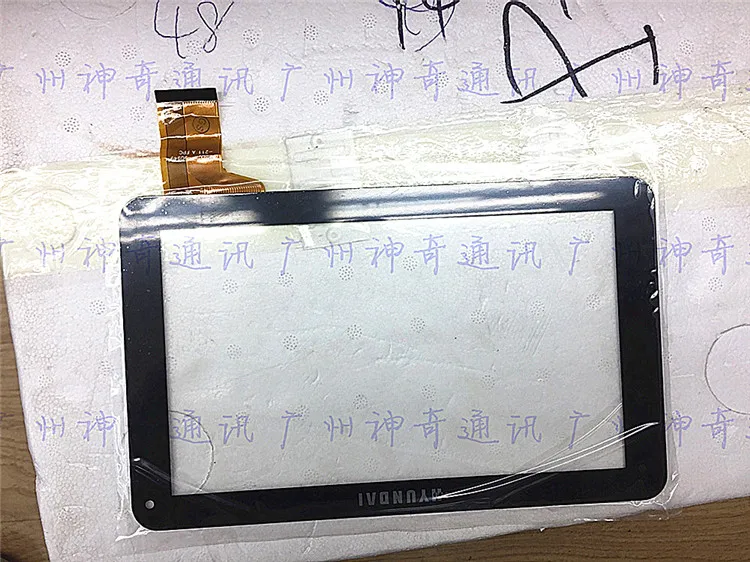 48
广州神奇通讯 广州神奇通讯 广州神奇
-211 A FPC
广州神奇通讯 广州神奇通讯 广州神奇
广州神奇通讯 广州神奇通讯 广州神奇
HYUNDAI